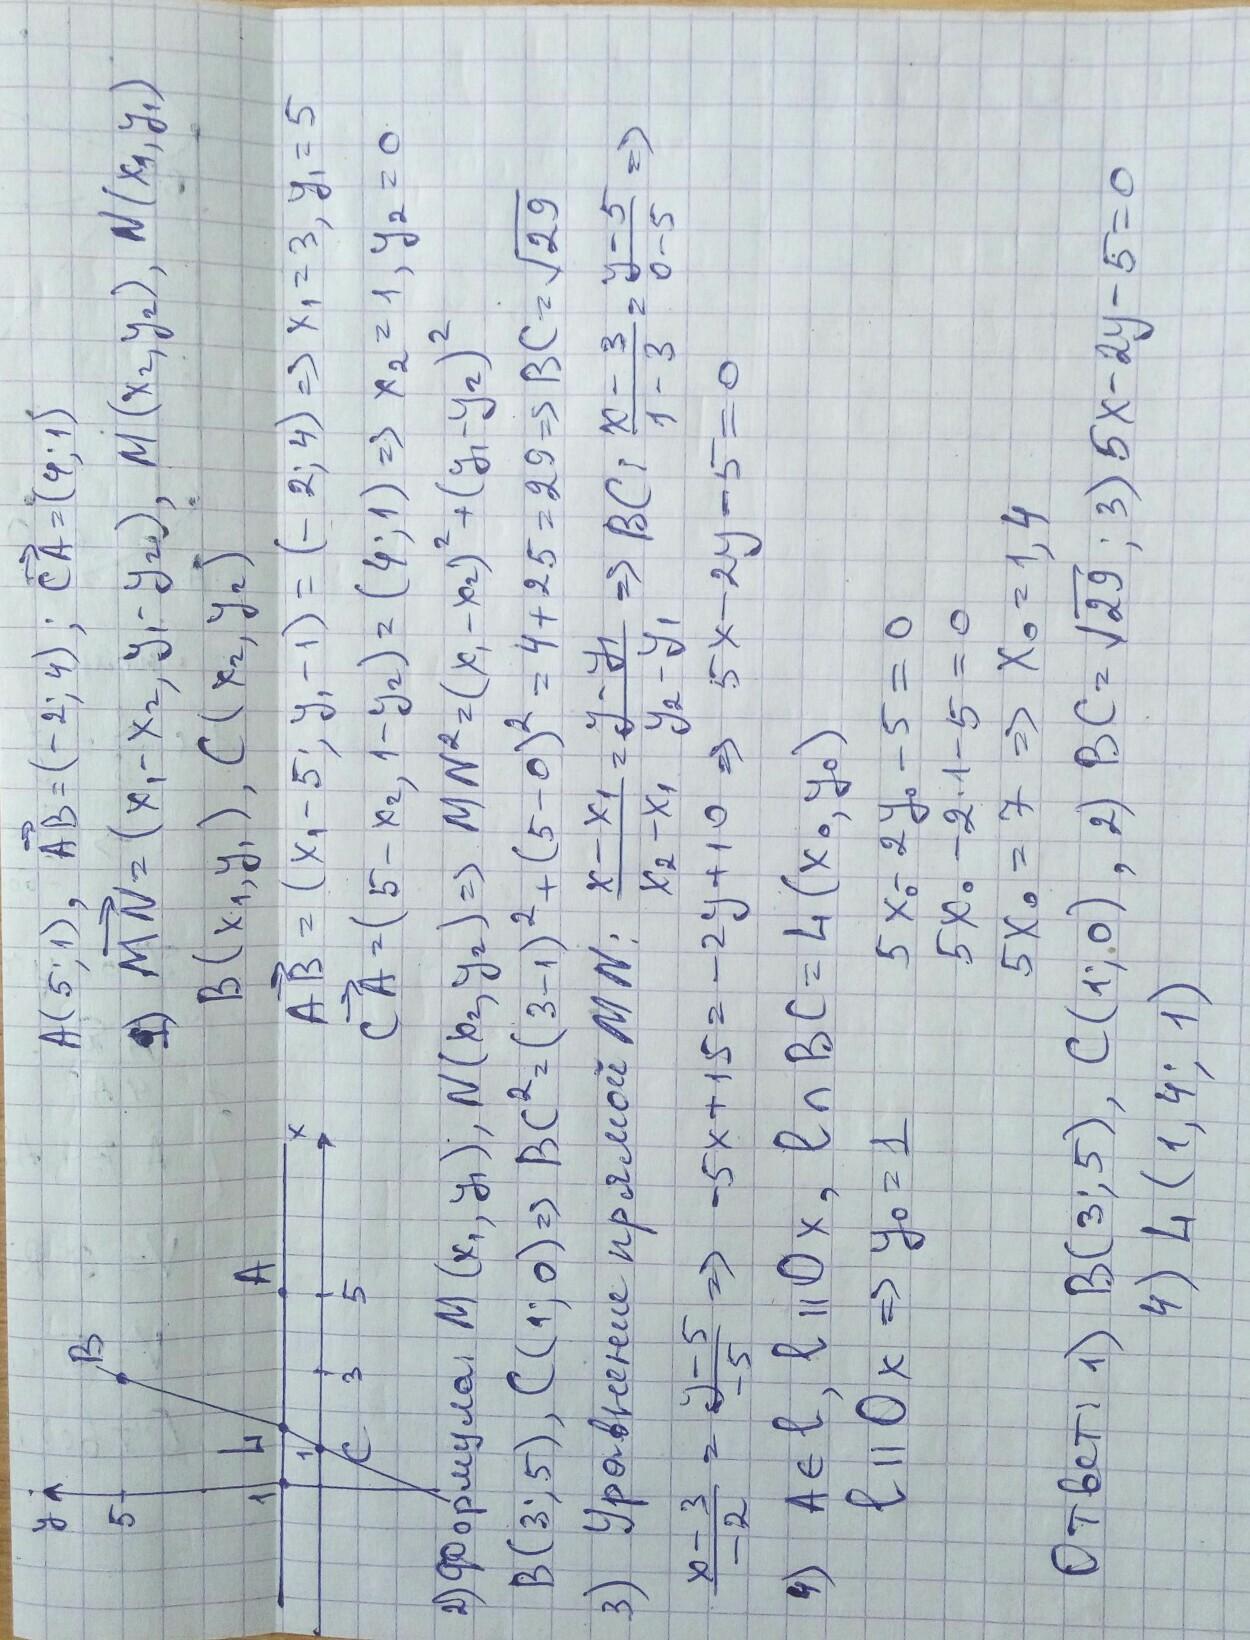 A(5;1), AB=(-2;4); CA=(4;1)
1) MN=(x₁-x₂, y₁-y₂), M(x₂,y₂), N(x₁,y₁)
B(x₁,y₁), C(x₂,y₂)
AB=(x₁-5; y₁-1)=(-2;4) => x₁=3, y₁=5
CA=(5-x₂, 1-y₂)=(4;1) => x₂=1, y₂=0
y
5
1
B
L
A
x
1
C
3
5
2) Формула: M(x₁,y₁), N(x₂,y₂) => MN²=(x₁-x₂)²+(y₁-y₂)²
B(3;5), C(1;0) => BC²=(3-1)²+(5-0)²=4+25=29 => BC=√29
3) Уравнение прямой MN: (x-x₁)/(x₂-x₁)=(y-y₁)/(y₂-y₁) => BC: (x-3)/(1-3)=(y-5)/(0-5) =>
(x-3)/-2=(y-5)/-5 => -5x+15=-2y+10 => 5x-2y-5=0
4) A∈l, l||Ox, l∩BC=L(x₀,y₀)
l||Ox => y₀=1
5x₀-2y₀-5=0
5x₀-2·1-5=0
5x₀=7 => x₀=1,4
Ответ: 1) B(3;5), C(1;0), 2) BC=√29; 3) 5x-2y-5=0
4) L(1,4; 1)